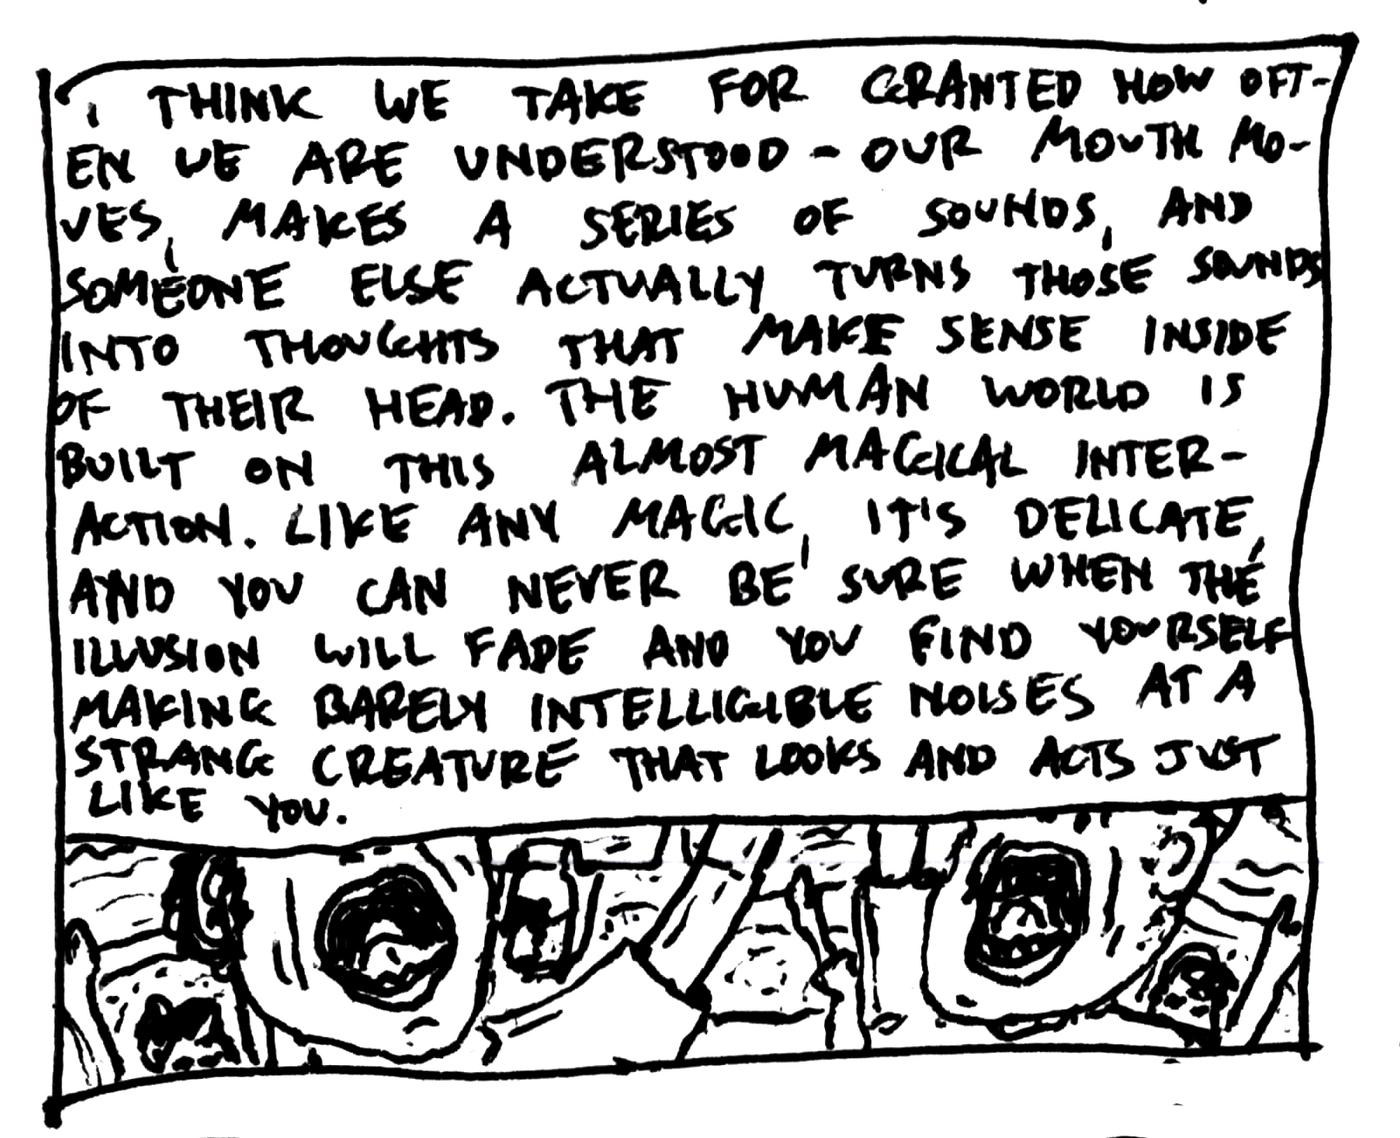 I THINK WE TAKE FOR GRANTED HOW OFT-
EN WE ARE UNDERSTOOD - OUR MOUTH MO-
VES, MAKES A SERIES OF SOUNDS, AND
SOMEONE ELSE ACTUALLY TURNS THOSE SOUNDS
INTO THOUGHTS THAT MAKE SENSE INSIDE
OF THEIR HEAD. THE HUMAN WORLD IS
BUILT ON THIS ALMOST MAGICAL INTER-
ACTION. LIKE ANY MAGIC, IT'S DELICATE,
AND YOU CAN NEVER BE SURE WHEN THE
ILLUSION WILL FADE AND YOU FIND YOURSELF
MAKING BARELY INTELLIGIBLE NOISES AT A
STRANG CREATURE THAT LOOKS AND ACTS JUST
LIKE YOU.